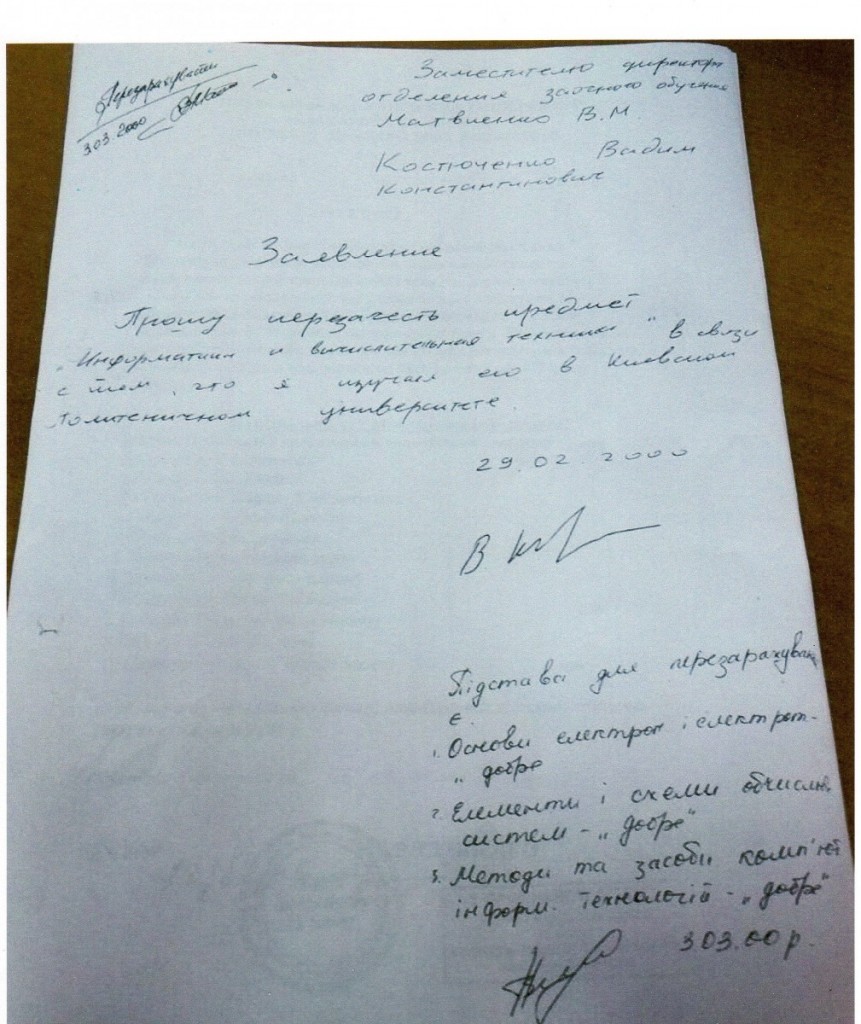 Перезарахувати
3.03.2000
Заместителю директора
отделения заочного обучения
Матвиенко В.М.
Костюченко Вадим
Константинович
Заявление
Прошу перезачесть предмет
„Информатики и вычислительная техники" в связи
с тем, что я изучал его в Киевском
Политеничном университете.
29.02.2000
Підстава для перезарахуван
є.
1. Основи електрон і електрот-
„ добре
2. Елементи і схеми обчислюв
систем - „добре"
3. Методи та засоби комп'ют
інформ. технологій - „добре"
3 03.00 р.